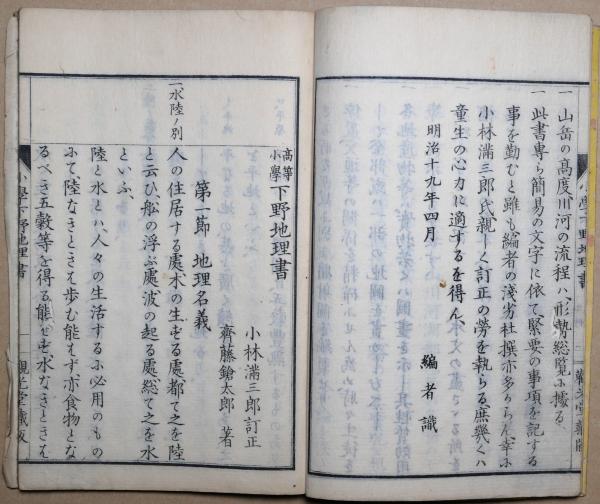 一 山岳の高度川河の流程ハ、形勢総覧ふ據る、
一 此書專ら簡易の文字に依て緊要の事項を記する
事を勤むと雖も編者の淺劣杜撰亦多からん幸ふ
小林滿三郎氏、親しく訂正の勞を執らる庶幾くハ
童生の心力に適するを得ん、
明治十九年四月
編者識
高等小學 下野地理書
小林滿三郎訂正
齋藤鎗太郎 著
第一節 地理名義
一、水陸ノ別
人の住居する處、木の生ずる處、都て之を陸
と云ひ、舩の浮ぶ處、波の起る處、總て之を水
といふ、
陸と水とハ、人々の生活するふ必用のもの
ふて、陸なきときハ歩む能はず、亦食物とな
るべき五穀等を得る能はず、水なきときハ
小學下野地理書
觀光堂藏版